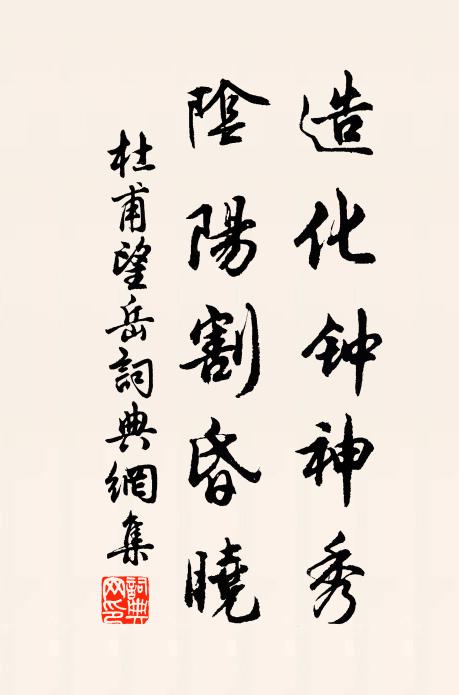 造化钟神秀
陰陽割昏曉
杜甫望岳詞典網集
詞典網印